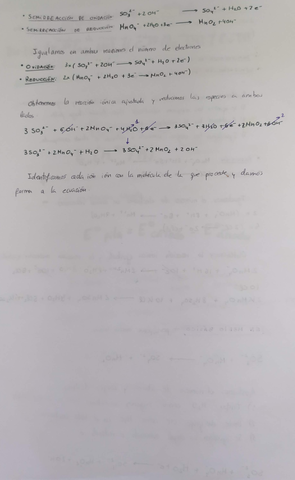 • SEMIREACCIÓN DE OXIDACIÓN SO₃²⁻ + 2OH⁻ → SO₄²⁻ + H₂O + 2e⁻
• SEMIREACCIÓN DE REDUCCIÓN MnO₄⁻ + 2H₂O + 3e⁻ → MnO₂ + 4OH⁻
Igualamos en ambas reacciones el número de electrones
• OXIDACIÓN: (SO₃²⁻ + 2OH⁻ → SO₄²⁻ + H₂O + 2e⁻)
• REDUCCIÓN: 2x (MnO₄⁻ + 2H₂O + 3e⁻ → MnO₂ + 4OH⁻)
Obtenemos la reacción iónica ajustada y las especies en ambos
lados
3 SO₃²⁻ + 6OH⁻ + 2MnO₄⁻ + 4H₂O + 6e⁻ → 3SO₄²⁻ + 3H₂O + 6e⁻ + 2MnO₂ + 8OH⁻ 2
3SO₃²⁻ + 2MnO₄⁻ + H₂O → 3SO₄²⁻ + 2MnO₂ + 2OH⁻
Identificamos cada ión con la molécula de la que procede, y damos
forma a la ecuación